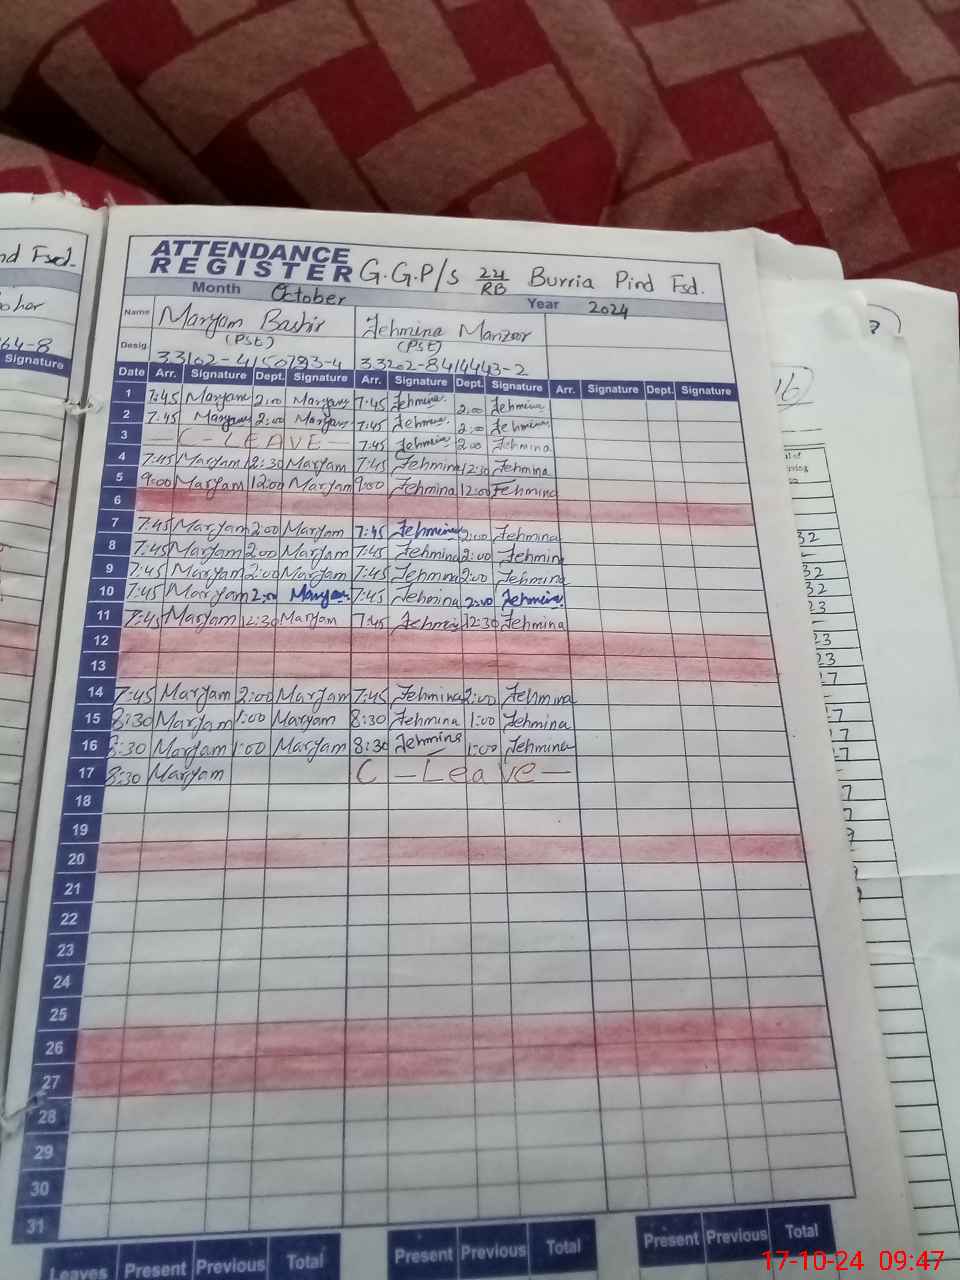 ATTENDANCE
REGISTER G.G.P/S 221/RB Burria Pind Fsd.
Month October Year 2024
Name Maryam Bashir Tehmina Manzoor
Desig. (PST) (PST)
33102-4150793-4 33202-8414443-2
Date Arr. Signature Dept. Signature Arr. Signature Dept. Signature Arr. Signature Dept. Signature
1 7:45 Maryam 2:00 Maryam 7:45 Tehmina 2:00 Tehmina
2 7:45 Maryam 2:00 Maryam 7:45 Tehmina 2:00 Tehmina
3 — C - LEAVE — 7:45 Tehmina 2:00 Tehmina
4 7:45 Maryam 12:30 Maryam 7:45 Tehmina 12:30 Tehmina
5 9:00 Maryam 12:00 Maryam 9:00 Tehmina 12:00 Tehmina
6
7 7:45 Maryam 2:00 Maryam 7:45 Tehmina 2:00 Tehmina
8 7:45 Maryam 2:00 Maryam 7:45 Tehmina 2:00 Tehmin
9 7:45 Maryam 2:00 Maryam 7:45 Tehmina 2:00 Tehmina
10 7:45 Maryam 2:00 Maryam 7:45 Tehmina 2:00 Tehmina
11 7:45 Maryam 12:30 Maryam 7:45 Tehmina 12:30 Tehmina
12
13
14 7:45 Maryam 2:00 Maryam 7:45 Tehmina 2:00 Tehmina
15 8:30 Maryam 1:00 Maryam 8:30 Tehmina 1:00 Tehmina
16 8:30 Maryam 1:00 Maryam 8:30 Tehmina 1:00 Tehmina
17 8:30 Maryam C - Leave —
18
19
20
21
22
23
24
25
26
27
28
29
30
31
Leaves Present Previous Total Present Previous Total Present Previous Total
Fsd.
64-8
Signature
16
32
32
32
23
23
23
27
17-10-24 09:47